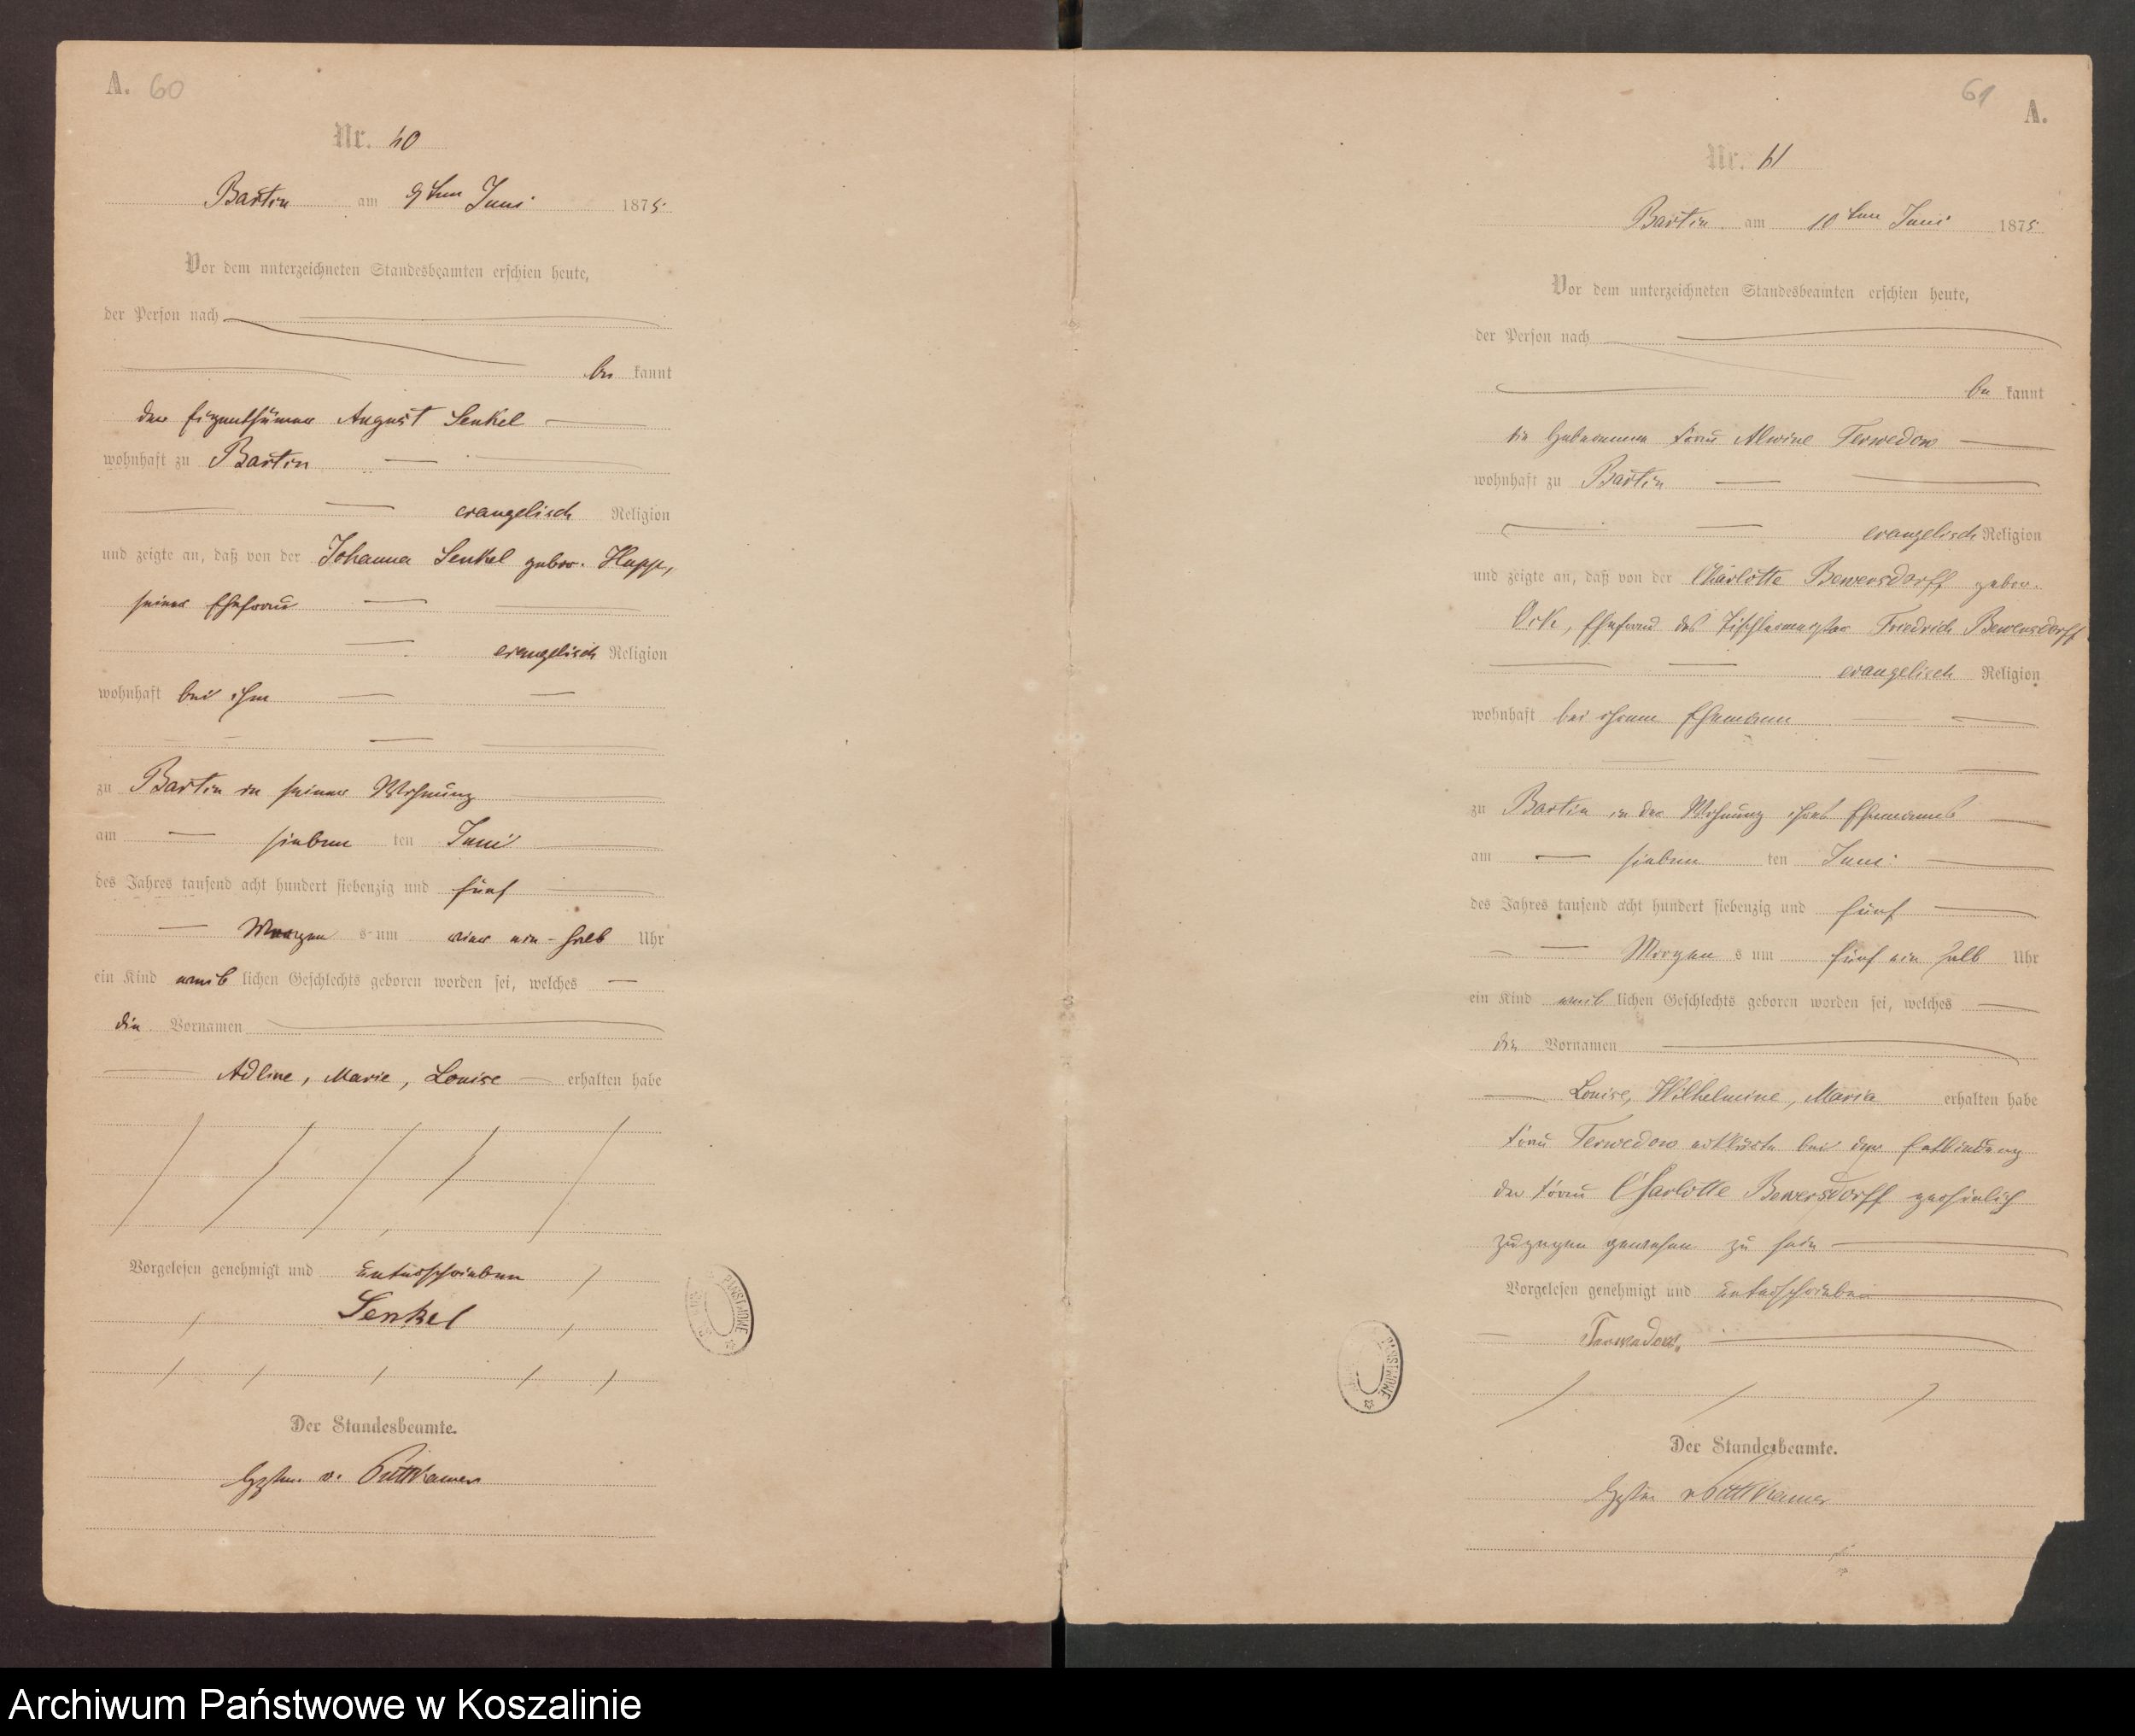 A. 60
Nr. 60
Bartin am 9ten Juni 1875.
Vor dem unterzeichneten Standesbeamten erschien heute,
der Person nach
be kannt
der Eigenthümer August Senkel
wohnhaft zu Bartin
evangelisch Religion
und zeigte an, daß von der Johanna Senkel gebor. Hupp,
seiner Ehefrau
evangelisch Religion
wohnhaft bei ihm
zu Bartin in seiner Wohnung
am sieben ten Juni
des Jahres tausend acht hundert siebenzig und fünf
Morgen s um ein-halb Uhr
ein Kind weib lichen Geschlechts geboren worden sei, welches
die Vornamen
Adline, Marie, Louise erhalten habe
Vorgelesen genehmigt und unterschrieben
Senkel
Der Standesbeamte.
v. Puttkamer
61
A.
Nr. 61
Bartin am 10ten Juni 1875
Vor dem unterzeichneten Standesbeamten erschien heute,
der Person nach
be kannt
die Hebeamme Frau Alwine Terwedow
wohnhaft zu Bartin
evangelisch Religion
und zeigte an, daß von der Charlotte Bewersdorff gebor.
Ehefrau des Tischlermeister Friedrich Bewersdorff
evangelisch Religion
wohnhaft bei ihrem Ehemann
zu Bartin in der Wohnung ihres Ehemannes
am sieben ten Juni
des Jahres tausend acht hundert siebenzig und fünf
Morgen s um fünf ein halb Uhr
ein Kind weib lichen Geschlechts geboren worden sei, welches
die Vornamen
Louise, Wilhelmine, Maria erhalten habe
Frau Terwedow erklärte bei der Entbindung
der Frau Charlotte Bewersdorff persönlich
zugegen gewesen zu sein
Vorgelesen genehmigt und unterschrieben
Terwedow.
Der Standesbeamte.
v Puttkamer
Archiwum Państwowe w Koszalinie